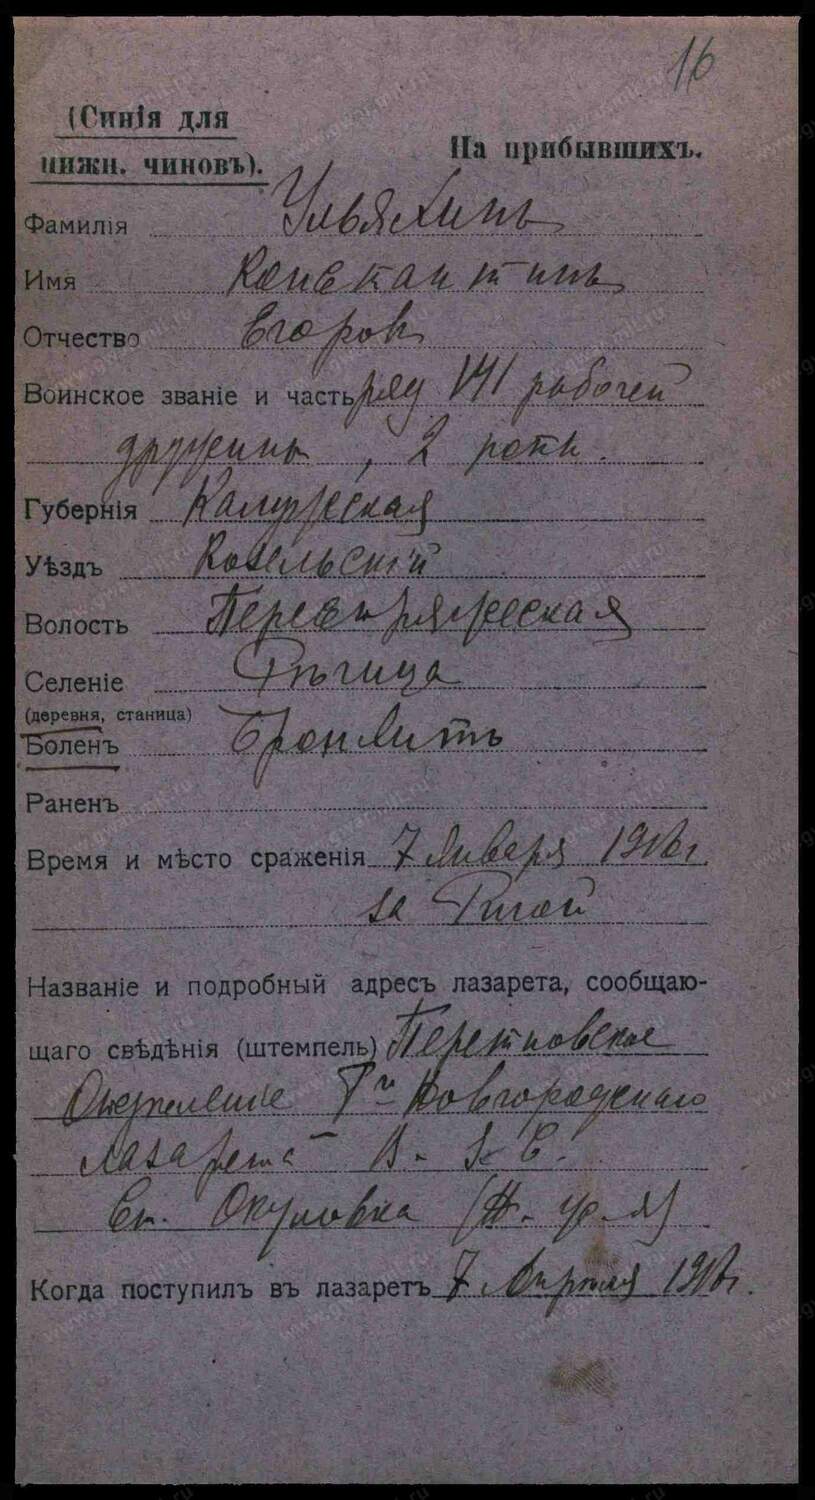 16
(Синія для
нижн. чиновъ).
На прибывшихъ.
Фамилія Ульяхинъ
Имя Константинъ
Отчество Егоровъ
Воинское званіе и часть ряд VI рабочей
дружины, 2 роты.
Губернія Калужская
Уѣздъ Козельскій
Волость
Селеніе
(деревня, станица)
Боленъ Бронхитъ
Раненъ
Время и мѣсто сраженія 7 Января
за Ригой
Названіе и подробный адресъ лазарета, сообщаю-
щаго свѣдѣнія (штемпель) Перетновское
Отдѣленіе Новгородскаго
лазарета В. З. С.
Ст. Окуловка (Н. ж. д.)
Когда поступилъ въ лазаретъ 7 Апрѣля